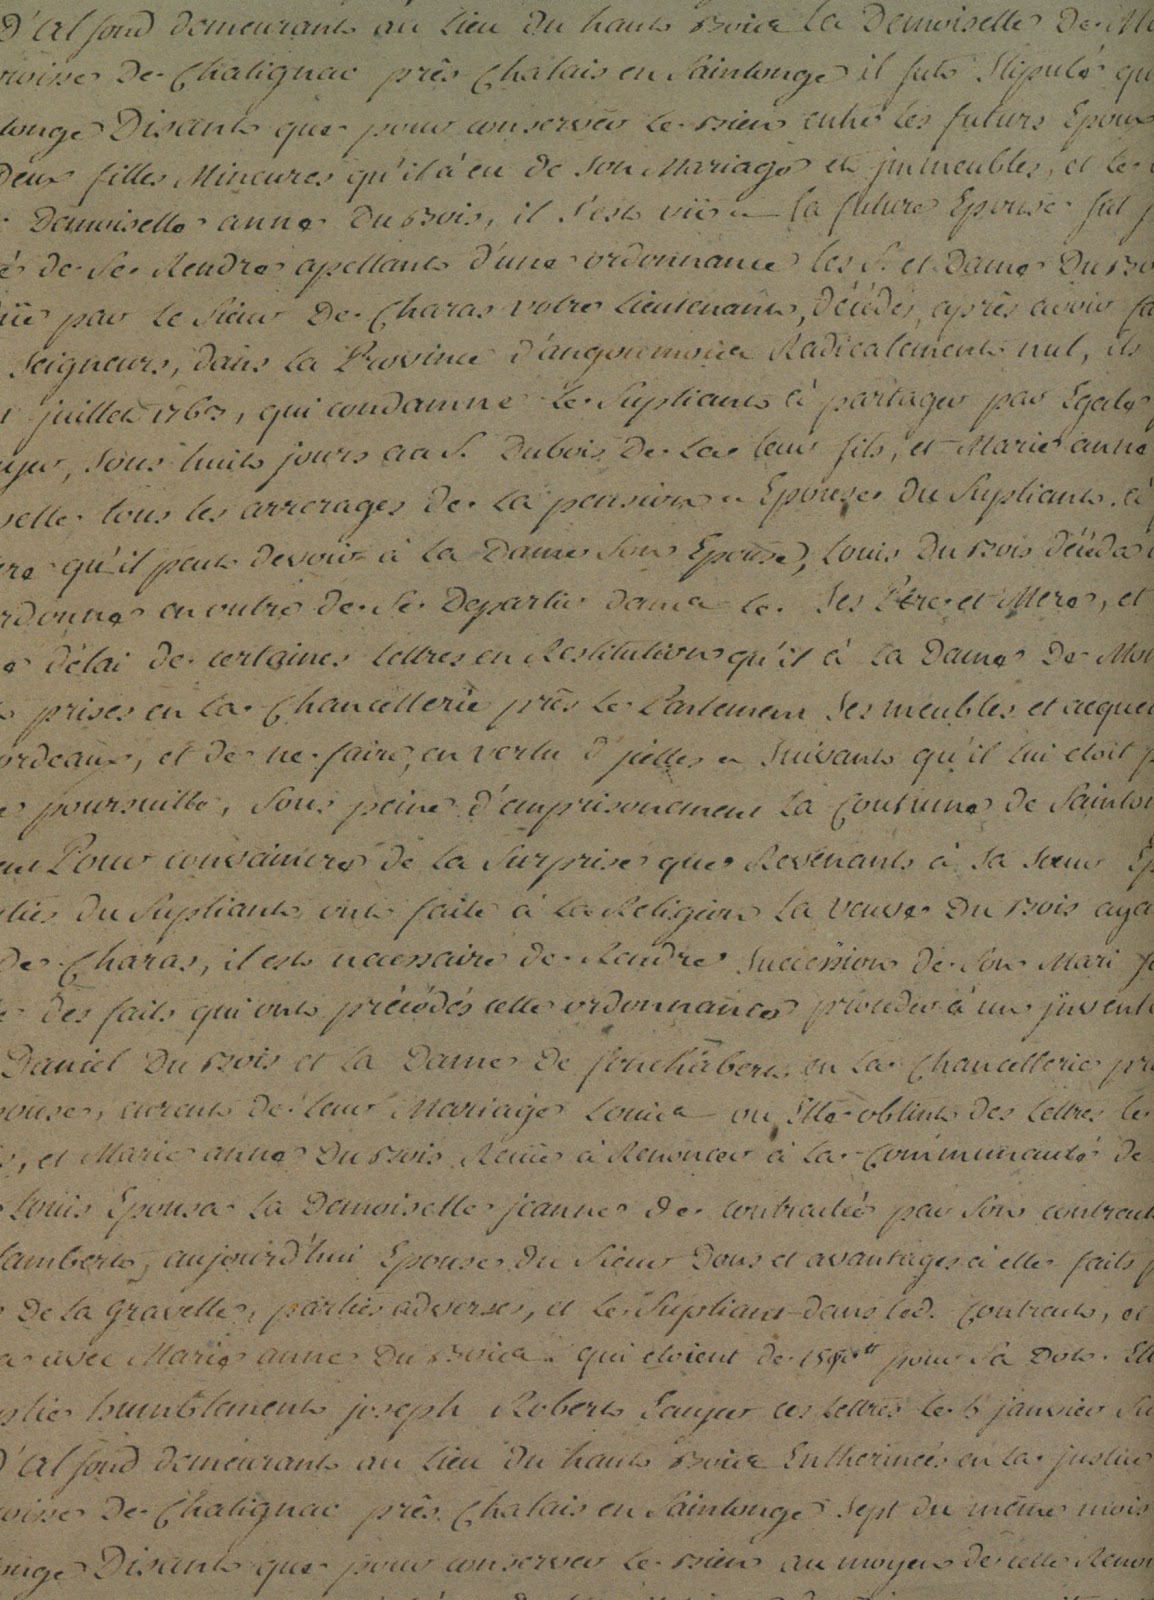 D'Alfond demeurants au Lieu du hauts Bois La Demoiselle De M
roisse De Chatignac près Chalais en Saintonge il futs Stipulé qu
tonge Disants que pour conserver le Bien entre les futurs Epoux
Deux filles Mineures qu'il à eu de Son Mariage et jmmeubles, et le
Demoiselle anne Du Bois, il S'ests vüe la future Epouse fut
é de Se Rendre apellants d'une ordonnance les S. et Dame Du Bo
üe par Le Sieur De Charas votre Lieutenants, décédés, après avoir fa
Seigneurs, dans La Province d'angoumois Radicalements nul, ils
juillets 1763, qui condamne Le Supliants à partager par Egale
ayer, Sous huits jours au S. Dubois De La leur fils, et Marie anne
selle tous les arrerages de La pension Epouse du Supliants, à
re qu'il peuts devoir à La Dame Son Epouse, Louis Du Bois décéda
rdonne en outre de Se Departir dans le Ses Pere et Mere, et
délai de certaines Lettres en Restitution qu'il à La Dame De Mo
prises en La Chancellerie près Le Parlement Ses meubles et acque
ordeaux, et de ne faire, en vertu d'jcelles Suivants qu'il lui etoit p
poursuitte, Sous peine d'emprisonnement La Coutume de Sainto
Pour convaincre de La Surprise que Revenants à Sa Sœur Ep
ties du Supliants, onts faite à La Religion La veuve Du Bois aya
De Charas, il ests necessaire de Rendre Succession de Son Mari
des faits qui onts précédés cette ordonnance proceder à un jnvent
Daniel Du Bois et La Dame De fonchâberts en La Chancellerie pr
pouse, eurents de Leur Mariage Louis ou Elle obtints des Lettres
, et Marie anne Du Bois Reçüe à Renoncer à La Communauté de
Louis Epousa La Demoiselle jeanne De contractée par Son contrats
Lamberts, aujourd'hui Epouse Du Sieur Dons et avantages à elle faits p
De La Gravelle, parties adverses, et Le Supliant dans led. Contrats, et
avec Marie anne Du Bois. qui etoient de pour Sa Dots. El
plie humblements joseph Roberts Sauyer ces Lettres le 5 janvier Su
D'Alfond demeurants au Lieu du hauts Bois Entherinées en La justice
roisse De Chatignac près Chalais en Saintonge Sept du même mois
onge Disants que pour conserver Le Bien au moyen de cette Renon